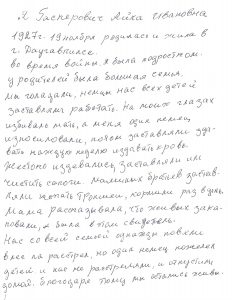 Я Гасперович Анна Ивановна
1927г. 19 ноября родилась и жила в
г. Даугавпилсе.
Во время войны я была подростком.
у родителей была большая семья,
мы голодали, немцы нас всех детей
заставляли работать. На моих глазах
избивали мать, а меня один немец
изнасиловали, потом заставляли сда-
вать каждую неделю сдавать кровь.
Жестоко издевались, заставляли им
чистить сапоги. Маленьких братьев застав-
ляли топать кормили раз в день.
Мама рассказывала, что живых зака-
повали, я была в том свидетель.
Нас со всей семьей однажды повели
в лес на расстрел, но один немец пожалел
детей и нас не расстреляли, и отпустили
домой. Благодаря тому мы остались живы.